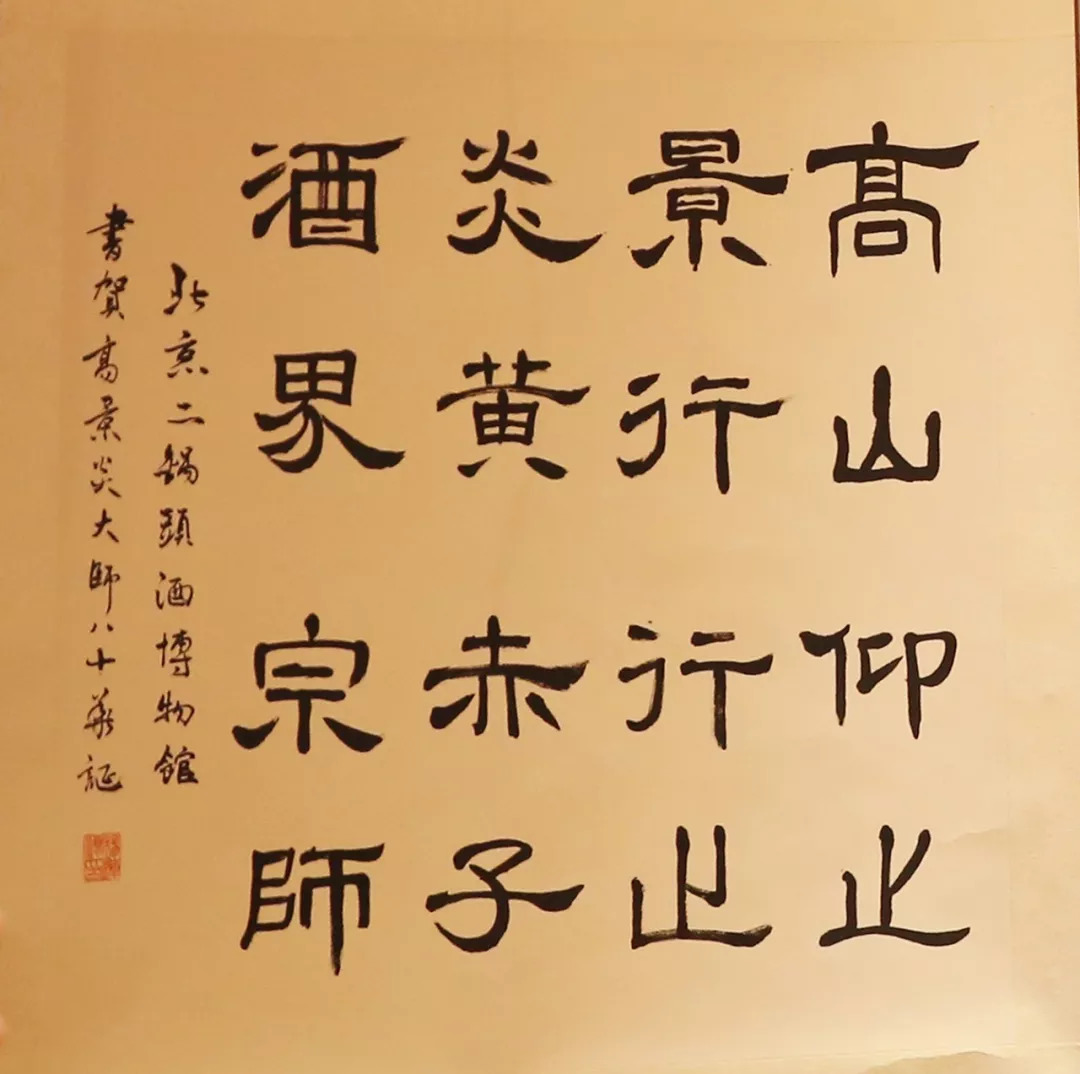 髙山仰止
景行行止
炎黄赤子
酒界宗師
北京二鍋頭酒博物館
書賀高景炎大師八十華誕